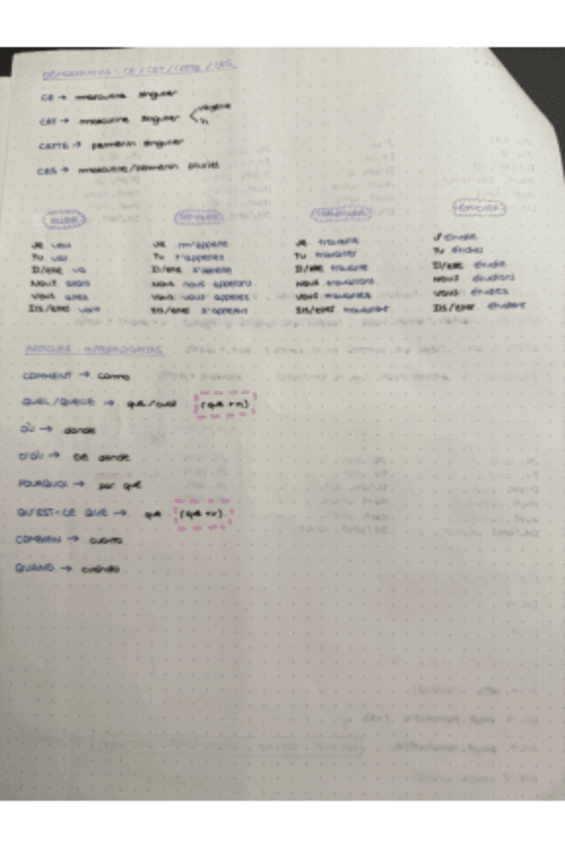 DÉMONSTRATIFS: CE / CET / CETTE / CES
CE → masculine singulier
CET → masculine singulier < voyelle
h
CETTE → femenin singulier
CES → masculine/femenin pluriel
ALLER
S'APPELER
TRAVAILLER
ÉTUDIER
Je vais
Tu vas
Il/elle va
Nous allons
Vous allez
Ils/elles vont
Je m'appelle
Tu t'appelles
Il/elle s'appelle
Nous nous appelons
Vous vous appelez
Ils/elles s'appellent
Je travaille
Tu travailles
Il/elle travaille
Nous travaillons
Vous travaillez
Ils/elles travaillent
J'étudie
Tu étudies
Il/elle étudie
Nous étudions
Vous étudiez
Ils/elles étudient
ARTICLES INTERROGATIFS
COMMENT → como
QUEL/QUELLE → qué/cual (qué + n)
OÙ → donde
D'OÙ → De donde
POURQUOI → por qué
QU'EST-CE QUE → qué (qué + v)
COMBIEN → cuanto
QUAND → cuando